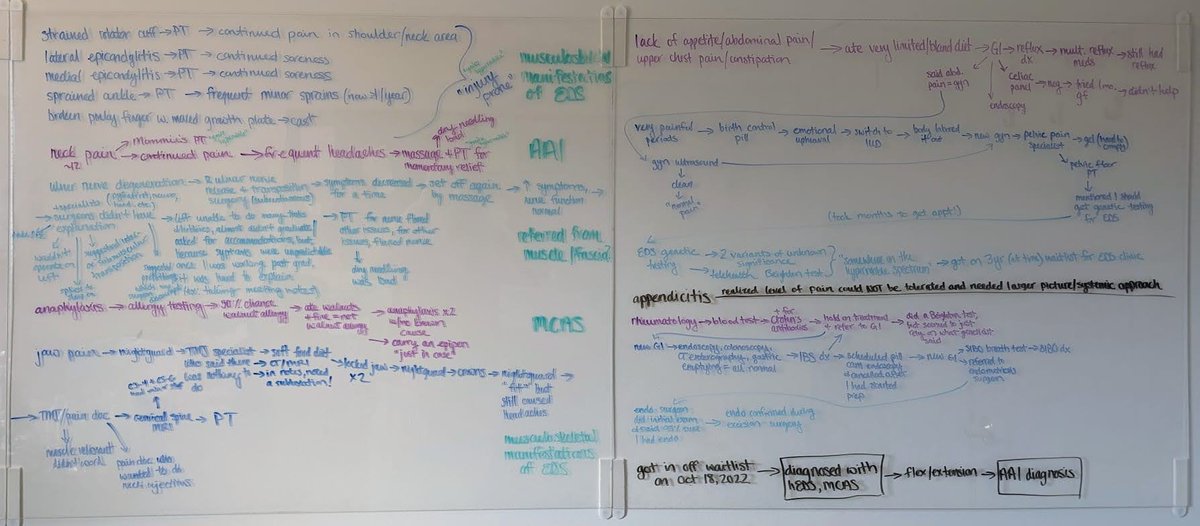 strained rotator cuff → PT → continued pain in shoulder/neck area
lateral epicondylitis → PT → continued soreness
medial epicondylitis → PT → continued soreness
sprained ankle → PT → frequent minor sprains (now >1/year)
broken pinky finger w. malled growth plate → cast
"injury prone"
musculoskeletal manifestations of EDS
neck pain → continued pain → frequent headaches → massage + PT for momentary relief
~12
→ Mommia's PT
dry-needling
AAI
Ulnar nerve degeneration → 2 ulnar nerve release + transposition surgery (subcutaneous) → symptoms decreased for a time → set off again by massage → ↑ symptoms, nerve function normal
→ surgeons didn't have explanation
wouldn't operate on left
suggested
or submuscular transposition
→ left unable to do many tasks
asked for accommodations, but
because symptoms were unpredictable
once I was working post grad,
it was hard to explain
(ex: taking meeting notes)
→ PT for nerve flared other issues, for other issues, flared nerve
dry needling was bad
referred from muscle/fascia?
anaphylaxis → allergy testing → 90% chance walnut allergy → ate walnuts + fine = not walnut allergy → anaphylaxis x2 w/no known cause
→ carry an epipen "just in case"
MCAS
jaw pain → nightguard → TMJ specialist → soft food diet
who said there was nothing to do
→ CT/MRI → in notes, noted a subluxation!
→ locked jaw x2 → nightguard → crowns → nightguard "fit" but still caused headaches
→ TMJ/pain doc → cervical spine MRI → PT
muscle relaxant didn't work
pain doc who wanted to do neck injections
musculoskeletal manifestations of EDS
lack of appetite/abdominal pain/
upper chest pain/constipation
→ ate very limited/bland diet → GI → reflux dx → mult. reflux meds → still had reflux
said abd. pain = gyn
endoscopy
celiac panel → neg → tried 1 mo. gf → didn't help
very painful periods → birth control pill → emotional upheaval → switch to IUD → body labored it out → new gyn → pelvic pain specialist → gel (healthy) (empty)
gyn ultrasound
clean
"normal pain"
pelvic floor PT
mentioned I should get genetic testing for EDS
(took months to get appt!)
EDS genetic testing → 2 variants of unknown significance
→ telehealth Beighton test
"somewhere in the hypermobile spectrum" → got on 3yr (at time) waitlist for EDS clinic
appendicitis realized level of pain could NOT be tolerated and needed larger picture/systemic approach
rheumatology → blood test → + for Crohn's antibodies → hold on treatment + refer to GI → did a Beighton test, but seemed to just rely on what geneticist said
new GI → endoscopy, colonoscopy, CT enterography, gastric emptying = all normal → IBS dx → scheduled pill cam endoscopy + cancelled after I had started prep → new GI → SIBO breath test → SIBO dx
→ referred to endometriosis surgeon
endo surgeon did initial exam + said 95% sure I had endo → endo confirmed during excision surgery
got in off waitlist on oct 18, 2022 → diagnosed with hEDS, MCAS → flex/extension → AAI diagnosis